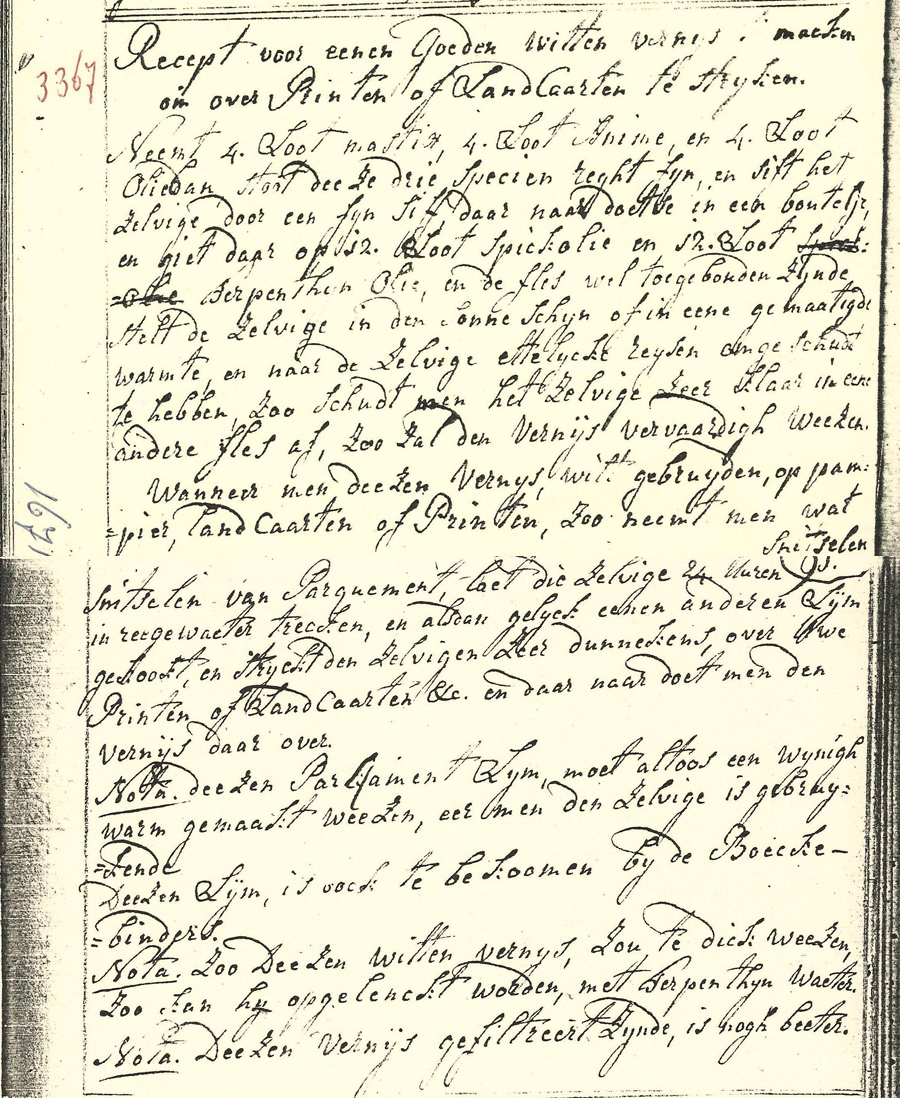 Recept voor eenen Goeden witten vernys maeken
3367
om over Printen of LandCaarten te stryken.
Neemt 4. Loot mastix, 4. Loot Anime, en 4. Loot
Olieban stoot deeze drie specien reght fyn, en sift het
zelvige door een fyn sift daar naar doet be in een boutelje,
en giet daar op 12. Loot spickolie en 12. Loot
=olie Terpenthyn Olie, en de fles wel toegebonden zynde
stelt de zelvige in den sonne schyn of in eene gemaatigde
warmte, en naar de zelvige ettelycke reysen omgeschudt
te hebben, zoo schudt men het zelvige zeer klaar in een
andere fles af, zoo zal den Vernijs vervaardigh weezen.
Wanneer men deezen Vernys, wilt gebruyden, op pam:
=pier, land Caarten of Printten, zoo neemt men wat
snitselen
1671
snitselen van Parquement, laet die zelvige 24 Uuren
in reegewaeter trecken, en alsdan gelyck eenen anderen Lijm
gekookt, en stryckt den zelvigen zeer dunnekens, over Uwe
Printen of LandCaarten &c. en daar naar doet men den
vernijs daar over.
Nota. deezen Parkament Lym, moet altoos een wynigh
warm gemaakt weezen, eer men den zelvige is gebruy=
=kende
Deezen Lijm, is oock te bekoomen by de Boecke-
=binders.
Nota. Zoo Deezen witten vernys, zou te dick weezen,
zoo kan hy opgelenckt worden, met Terpenthyn Waeter.
Nota. Deezen Vernijs gefiltreert zynde, is nogh beeter.